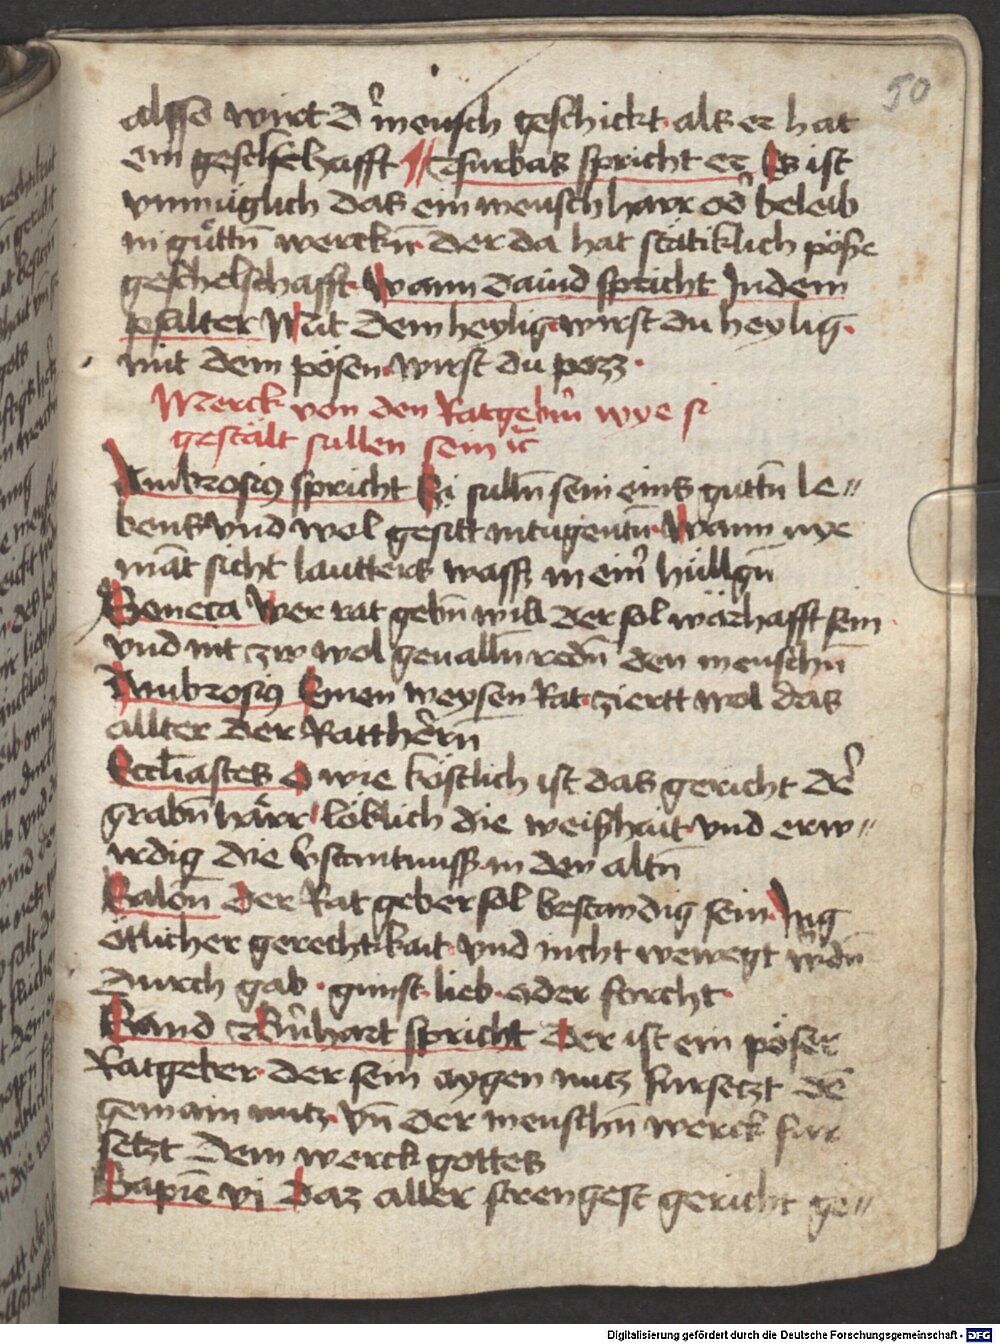 50
alsso wirt d' mensch geschickt als er hat
ein geschelhafft Tzfurbas spricht er Es ist
vnmüglich das ein mensch harr od' beleib
in güttn̄ werckn̄ der da hat stätiklich pöse
geschelschafft Wann dauid spricht Indem
psalter Mit dem heylig wirst du heylig
mit dem pösen wirst du pozz
Merck von den Ratgebn̄ wye si
gestalt sullen sein
Ambrosius spricht Si sulln̄ sein eins guttn̄ le//
bens vnd wol gesitt in tugentn̄ Wann nye
māt sicht lautters wass in eim̄ hüllgn̄
Seneca Wer rat gebn̄ will der sol warhafft sein
vnd nit zw wol geualln̄ redn̄ den menschn̄
Ambrosius Einen weysen Rat ziertt wol das
allter der Ratthern
Ecclīastes O wie köstlich ist das gericht dē
grabn̄ härr löblich die weißhait vnd erw//
irdig die vstentnuss in den altn̄
Catōn Der Rat geber sol bestandig sein Mǖg
ötlicher gerechtikait vnd nicht wewegt w'dn̄
durch gab gunst lieb oder forcht
Sand Bn̄hart spricht Der ist ein pöser
Ratgeber der sein aygen nutz fursetzt dē
gemain nutz vn̄ der menschn̄ werck fur
setzt dem werck gottes
Sapiē vi Daz aller strengest gericht ge//
Digitalisierung gefördert durch die Deutsche Forschungsgemeinschaft - DFG